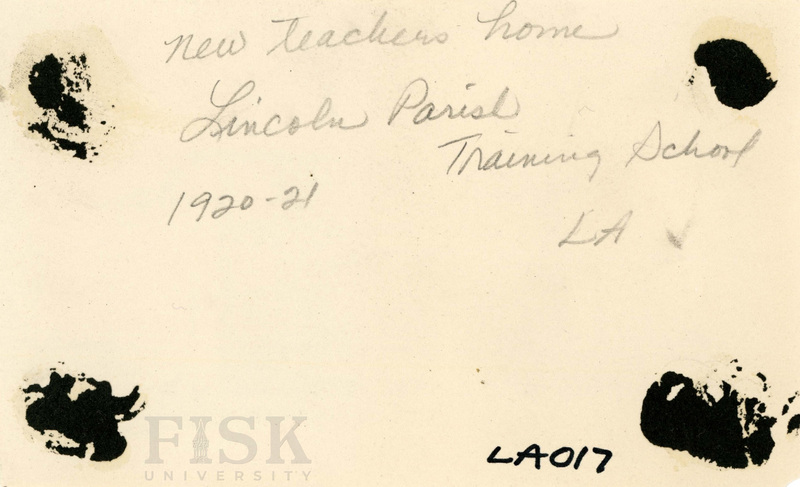 new teachers home
Lincoln Parish
Training School
1920-21
LA
FISK
UNIVERSITY
LA017